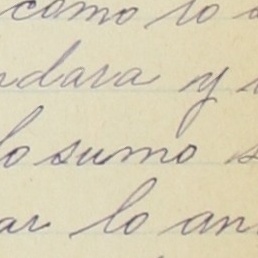 como lo
dara y
lo sumo
ar lo an